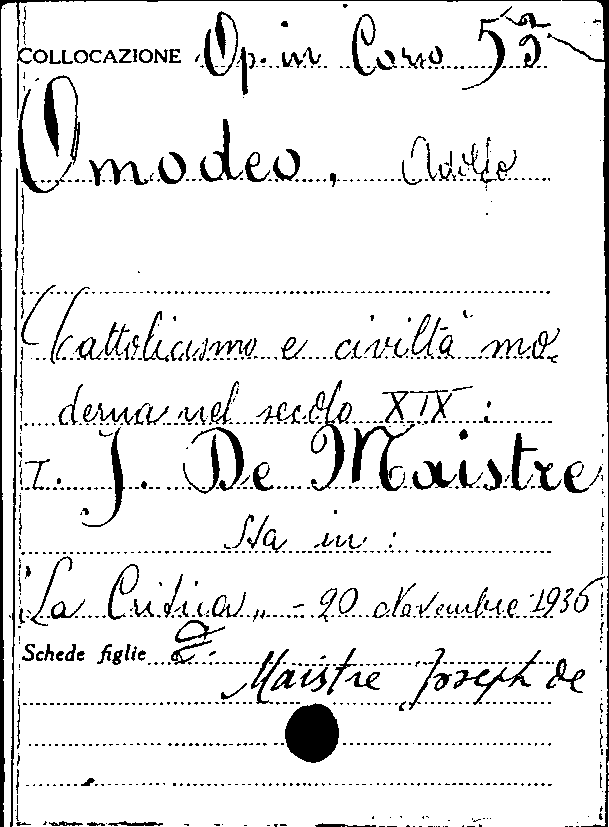 COLLOCAZIONE Op. in Corso 53
Omodeo, Adolfo
Cattolicismo e civiltà mo-
derna nel secolo XIX :
I. J. De Maistre
Sta in :
"La Critica„ - 20 Novembre 1936
Schede figlie 2.
Maistre Joseph de